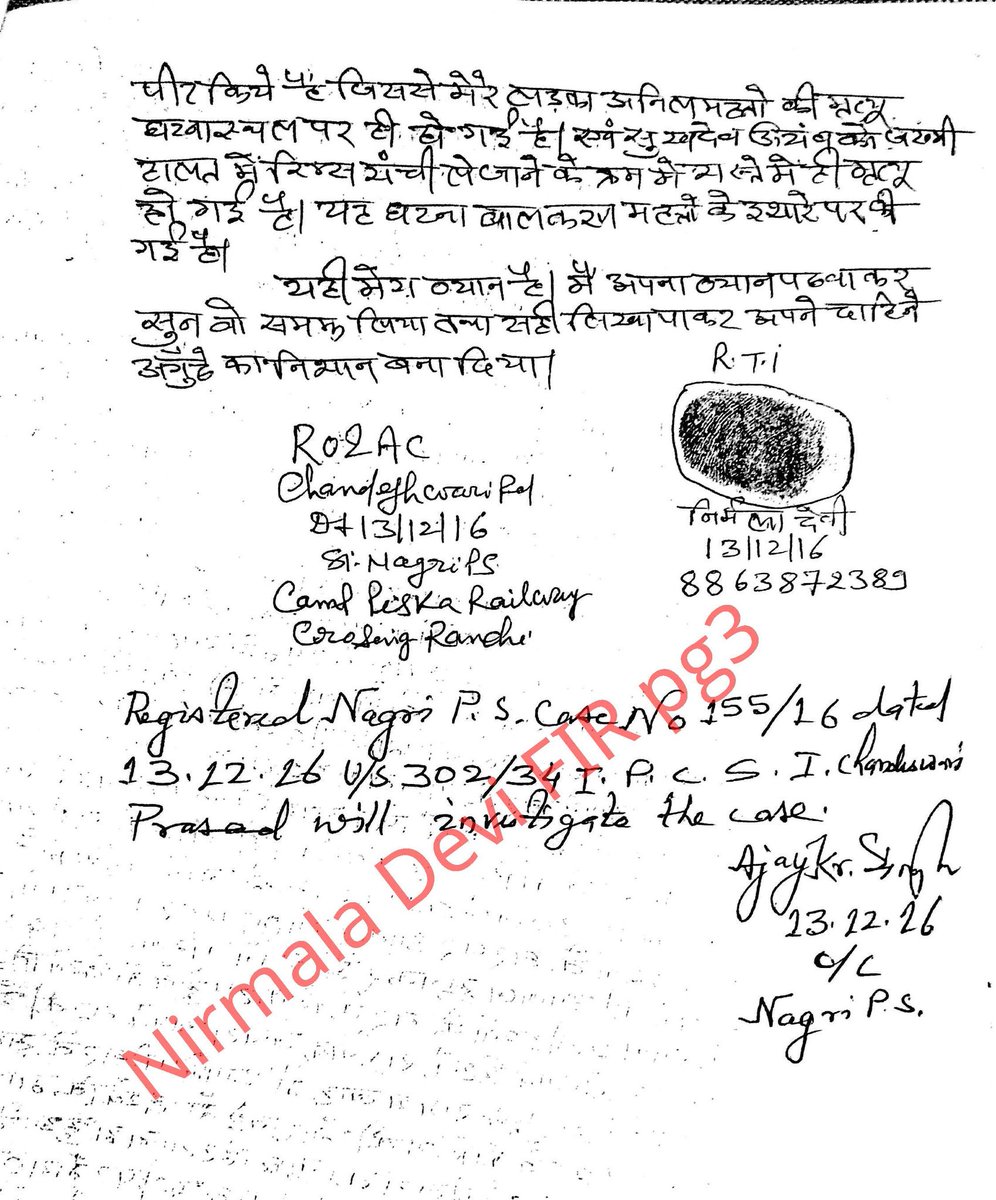 पीट किये हैं जिससे मेरे लड़का अनिल महतो की मृत्यु
घटनास्थल पर ही हो गई है। एवं सुखदेव उराँव को जख्मी
हालत में रिम्स राँची ले जाने के क्रम मे रास्ते मे ही मृत्यु
हो गई है। यह घटना बालकरण महतो के इशारे पर की
गई है।
यही मेरा ब्यान है। मैं अपना ब्यान पढवा कर
सुन वो समझ लिया तथा सही लिखा पाकर अपने दाहिने
अँगुठे का निशान बना दिया।
R.T.I
निर्मला देवी
13/12/16
8863872389
RO&AC
Chandeshwari Pd
Dt 13/12/16
SI. Nagri PS
Camp Piska Railway
Crosing Ranchi
Registered Nagri P.S. Case No 155/16 dated
13.12.16 U/S 302/34 I.P.C. S.I. Chandeswari
Prasad will investigate the case.
Ajay Kr. Singh
13.12.16
O/C
Nagri P.S.
Nirmala Devi FIR pg3